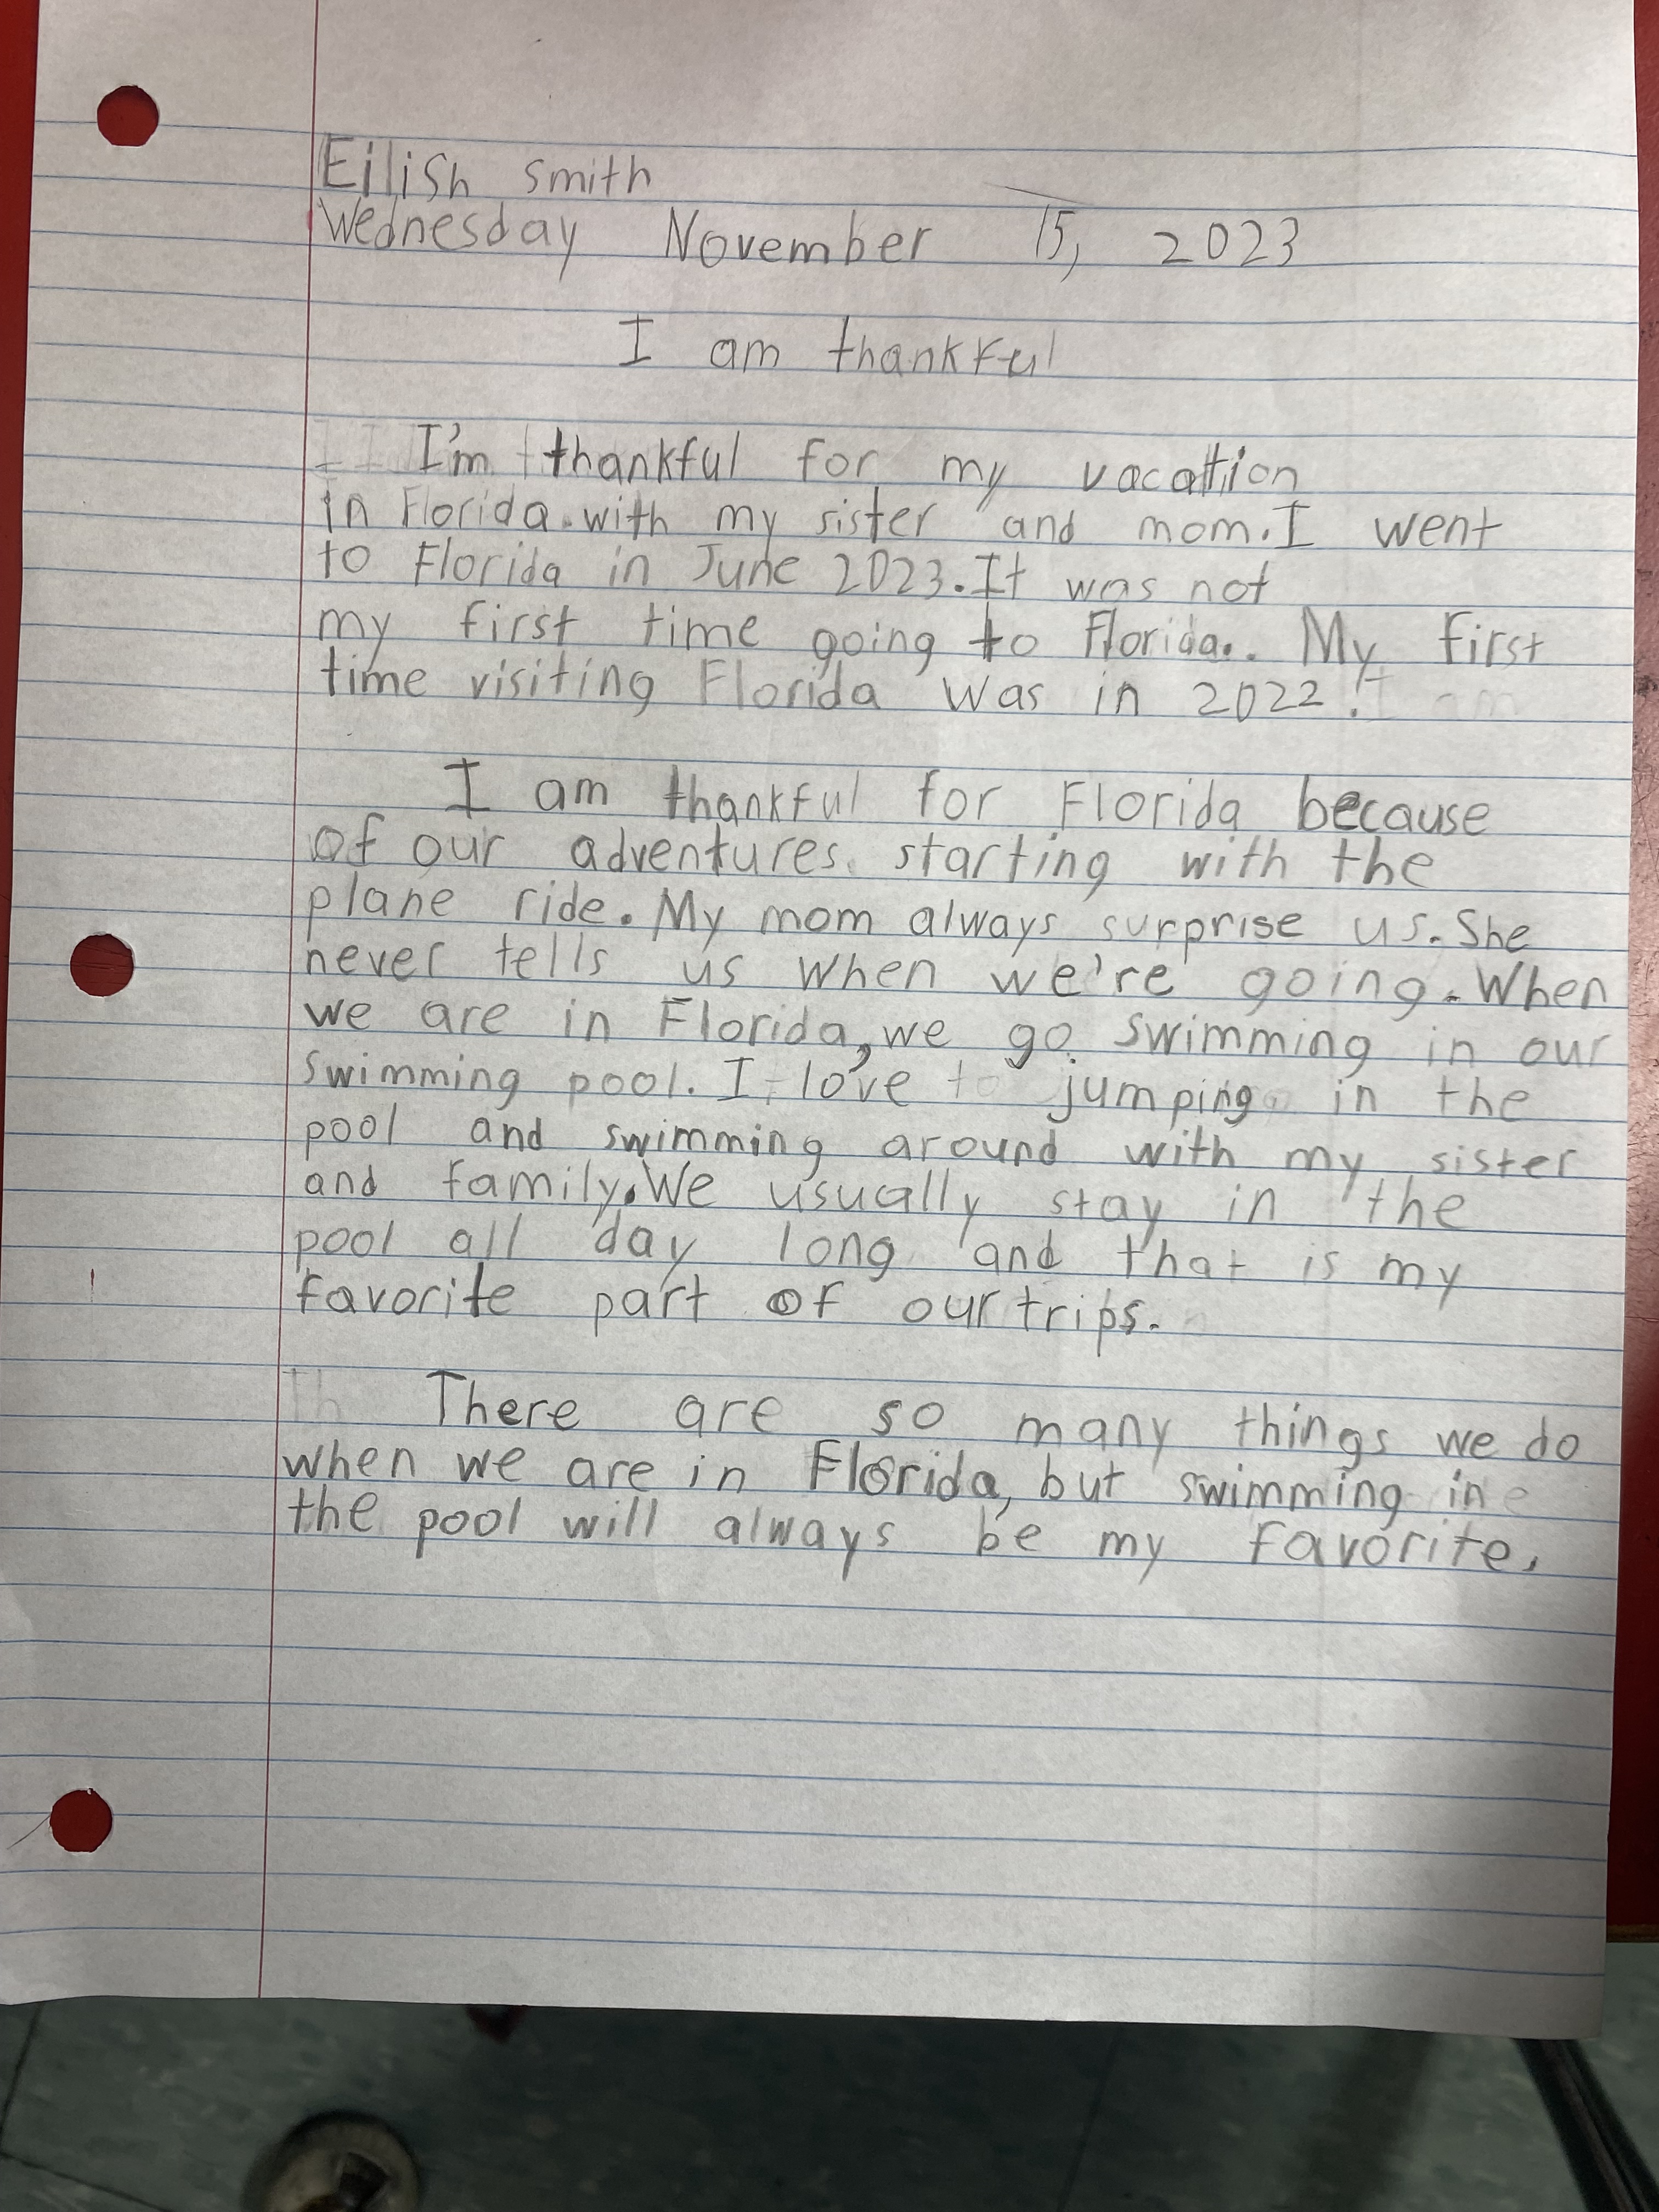 Eilish smith
Wednesday November 15, 2023
I am thankful
I'm thankful for my vacation
in Florida.with my sister and mom.I went
to Florida in June 2023.It was not
my first time going to Florida.. My first
time visiting Florida was in 2022.
I am thankful for Florida because
of our adventures. starting with the
plane ride.My mom always surprise us.She
never tells us when we're going.When
we are in Florida,we go swimming in our
swimming pool. I love jumping in the
pool and swimming around with my sister
and family.We usually stay in the
pool all day long and that is my
favorite part of our trips.
There are so many things we do
when we are in Florida, but swimming in
the pool will always be my favorite.